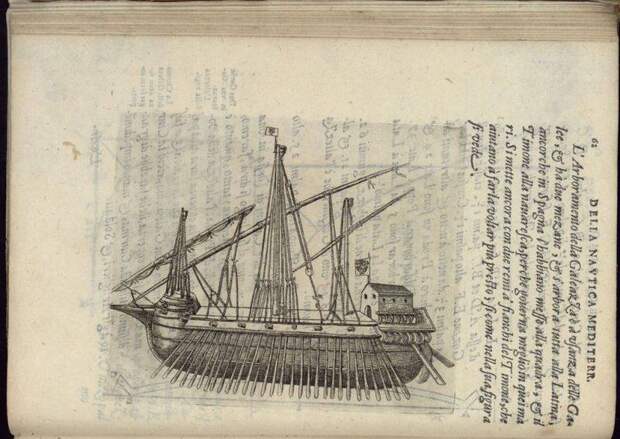 62 DELLA NAVTICA MEDITERR.
L'Arboramento della Galeazza è d'usanza delle Ga-
lee, & hà due mezane; & s'arbora tutta alla Latina;
ancorche in Spagna l'habbiano messe alla quadra, & il
Timone alla nauaresca, perche gouerna meglio in quei ma
ri. Si mette ancora con due remi a' fianchi del Timone, che
aiutano à farla voltar più presto; sicome nella sua figura
si vede.